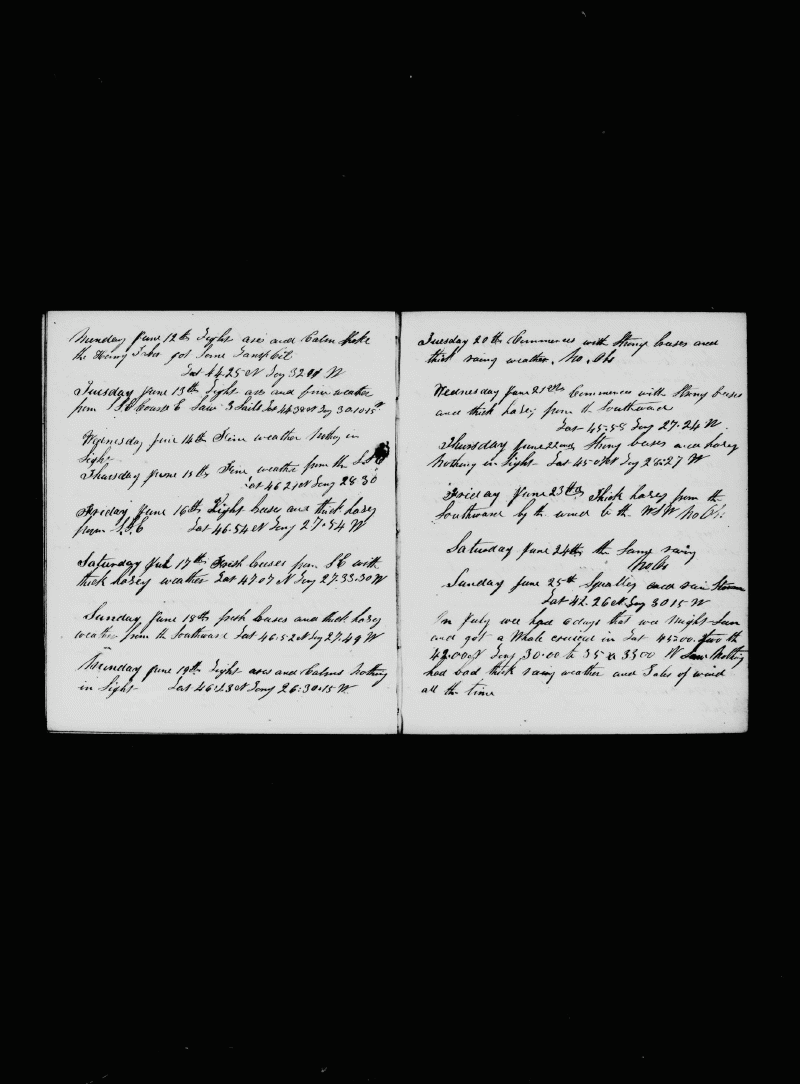 Munday June 12th Light ares and Calm Spoke
the Henry Taber got Some Lamp Oil
Lat 44.25 N Long 32.01 W
Tuesday June 13th Light ares and fine weather
from S E Course E Saw 3 Sails Lat 44.38 N Long 30.10 15
Wednesday June 14th Fine weather Nothing in
Sight
Thursday June 15th Fine weather from the S S E
Lat 46 21 N Long 28 30
Friday June 16th Light breses and thick hazey
from S.S.E Lat 46.54 N Long 27.54 W
Saturday 17th Fresh breses from S E with
thick hazey weather Lat 47.07 N Long 27.33.30 W
Sunday June 18th fresh breses and thick hazey
weather from the Southward Lat 46.52 N Long 27.49 W
Munday June 19th Light ares and Calms Nothing
in Sight Lat 46.28 N Long 26.30.15 W
Tuesday 20th Commences with Strong breses and
thick rainy weather. No. Obs
Wednesday June 21th Commences with Strong breses
and thick hazey from the Southward
Lat 45.58 Long 27.24 W
Thursday June 22nd Strong breses and hazey
Nothing in Sight Lat 45.0 N Long 28.27 W
Friday June 23th Thick hazey from the
Southward by the wind to the W S W No Obs.
Saturday June 24th the Same rainy
No Obs
Sunday June 25th Squalley and rain Storm
Lat 42.26 N Long 30 15 W
In July wee had 6 days that we Might Sun
and got a Whale cruised in Lat 45.00. two th
42.00 N Long 30.00 to 35 33 00 W Saw Nothing
had bad thick rainy weather and Gales of wind
all the time